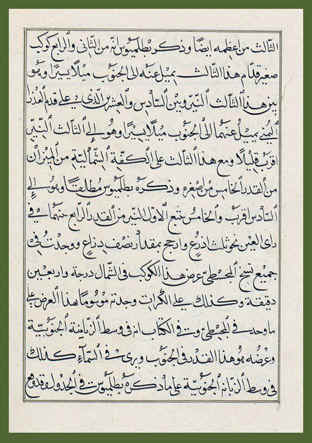 الثالث من اعظمه ايضًا وذكر بطلميوس انه من الثاني والرابع كوكب
صغير قدام هذا الثالث يميل عنه الى الجنوب ميلا يسيرا وهو
بين هذا الثالث النير وبين السادس والعشرين الذي على قدم العذرا
اليمنى يميل عنهما الى الجنوب ميلا يسيرا وهو الى الثالث النير
اقرب قليلا ومع هذا الثالث على الكفة الشمالية من الميزان
من القدر الخامس من اصغره وذكره بطلميوس مطلقا وهو الى
السادس اقرب والخامس يتبع الاول النير من القدر الرابع بينهما في
راى العين نحو ثلث ذراع وارجح بمقدار نصف ذراع ووجدت في
جميع نسخ المجسطي عرض هذا الكوكب في الشمال درجة واربعين
دقيقة وكذلك على الكرات وجدته مرسوما بهذا العرض على
ما وجد في المجسطي وت في الكتاب انه في وسط الزبانة الجنوبية
وعرضه بهذا القدر في الجنوب ويرى في السماء كذلك
في وسط الزبانة الجنوبية على ما ذكره بطلميوس في الجدول وقد وقع